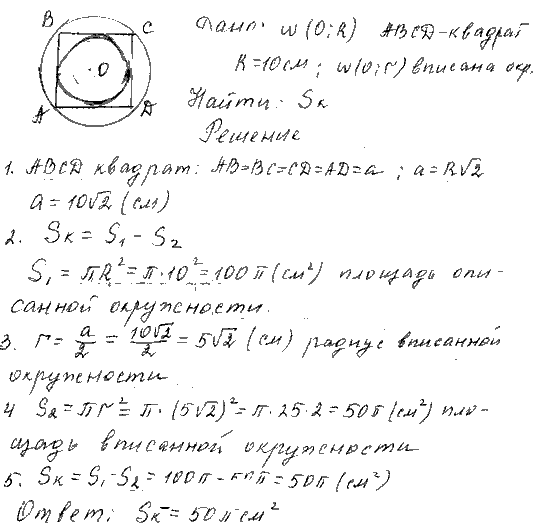 B C
O
A D
Дано: w (O; R) ABCD-квадрат
R=10см; w(O; r) вписана окр.
Найти: Sк
Решение
1. ABCD квадрат: AB=BC=CD=AD=a; a=R√2
a=10√2 (см)
2. Sк = S₁ - S₂
S₁ = πR² = π·10² = 100π (см²) площадь опи-
санной окружности.
3. r = a/2 = 10√2/2 = 5√2 (см) радиус вписанной
окружности
4 S₂ = πr² = π·(5√2)² = π·25·2 = 50π (см²) пло-
щадь вписанной окружности
5. Sк = S₁-S₂ = 100π - 50π = 50π (см²)
Ответ: Sк = 50π см²